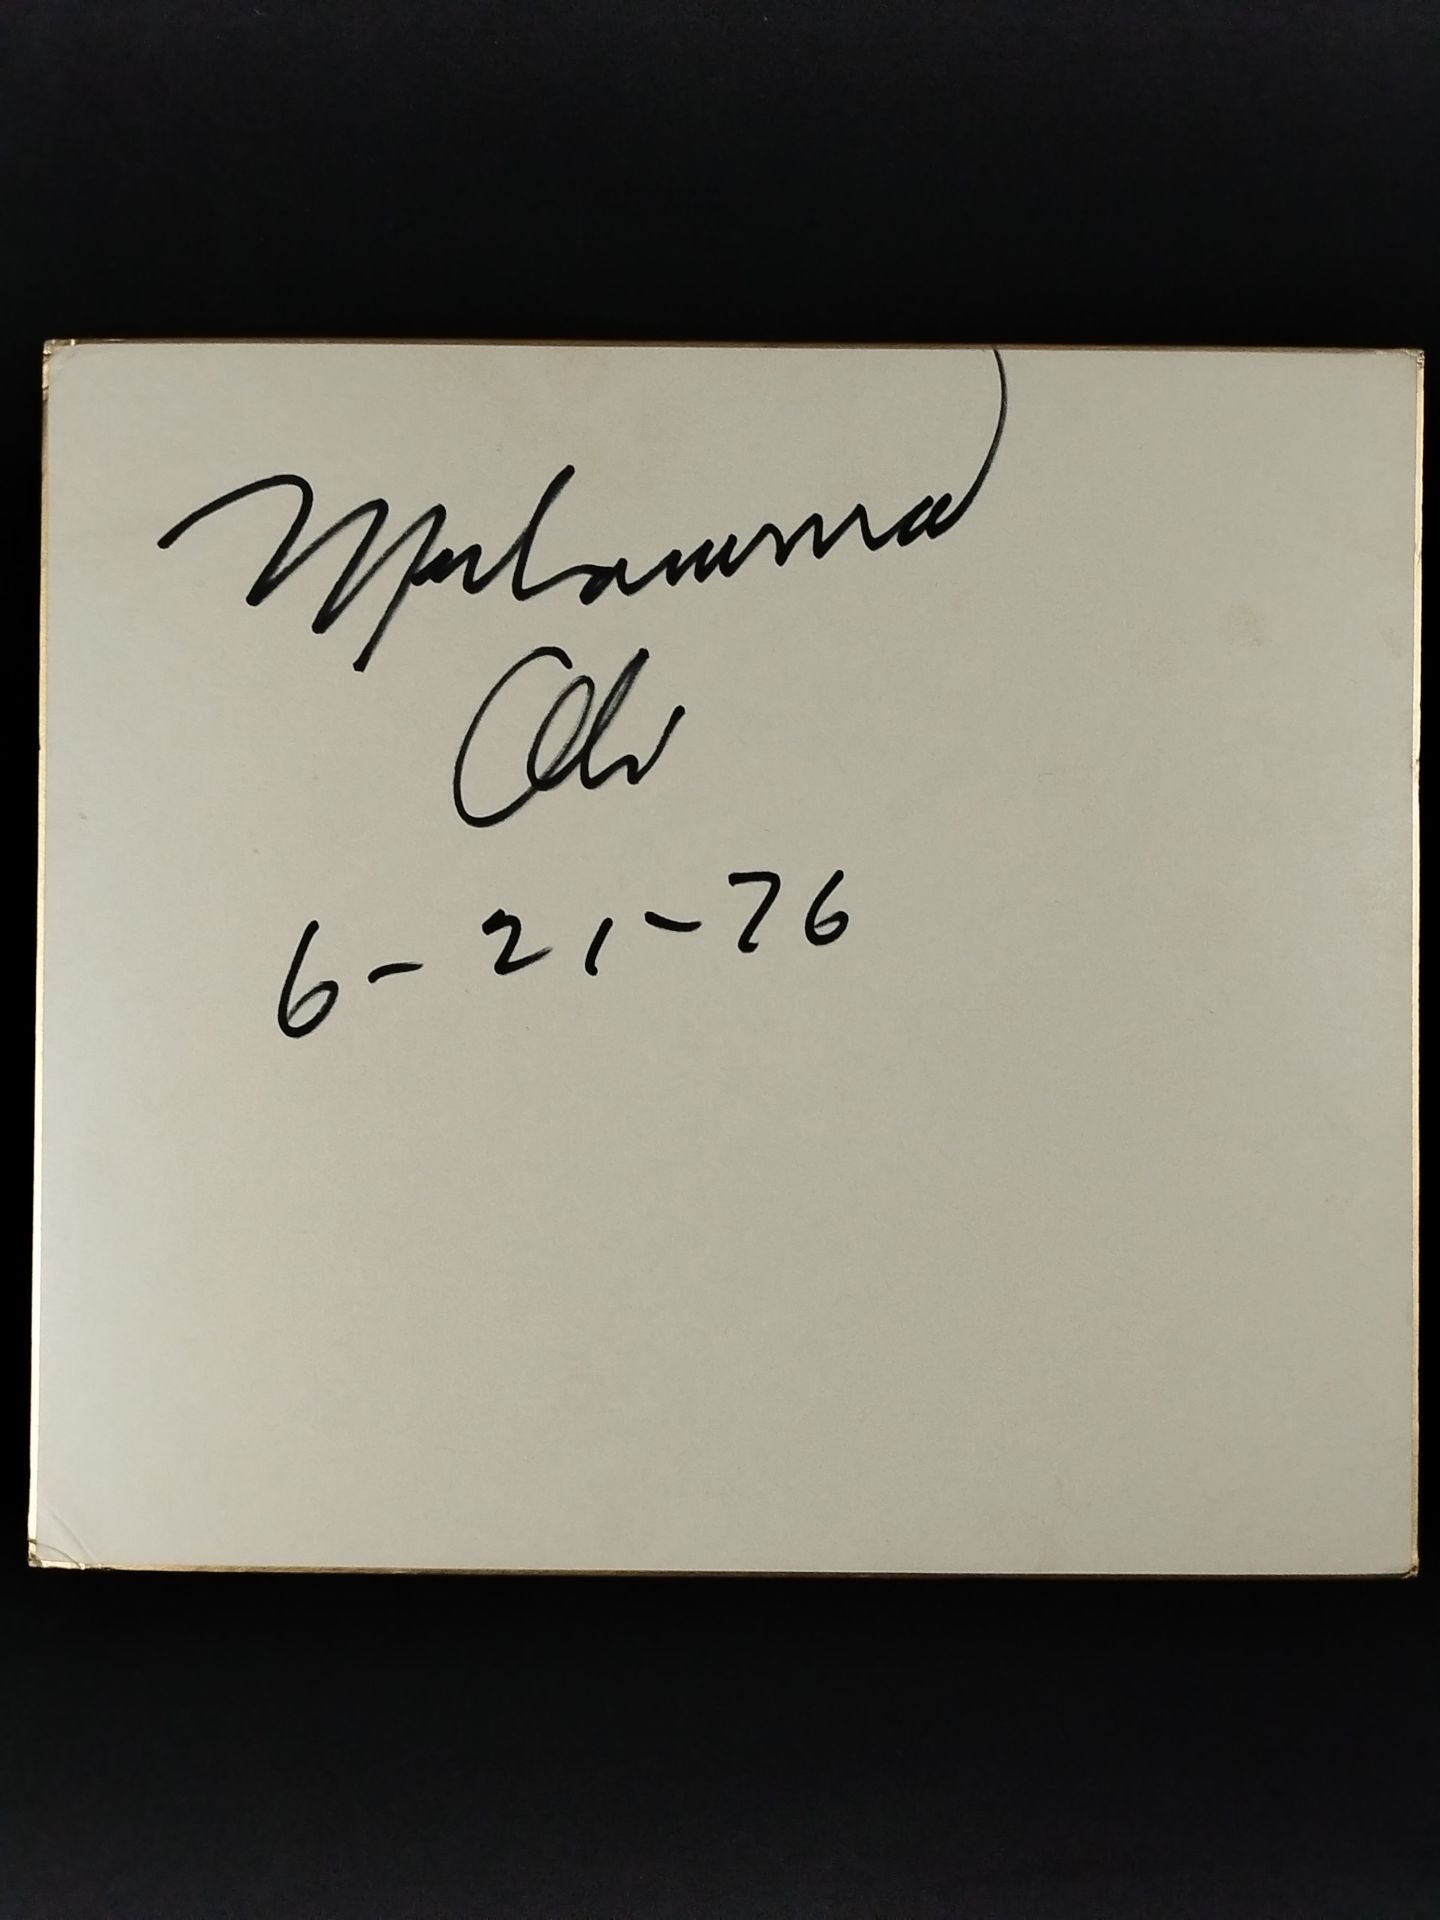 Muhammad
Ali
6-21-76